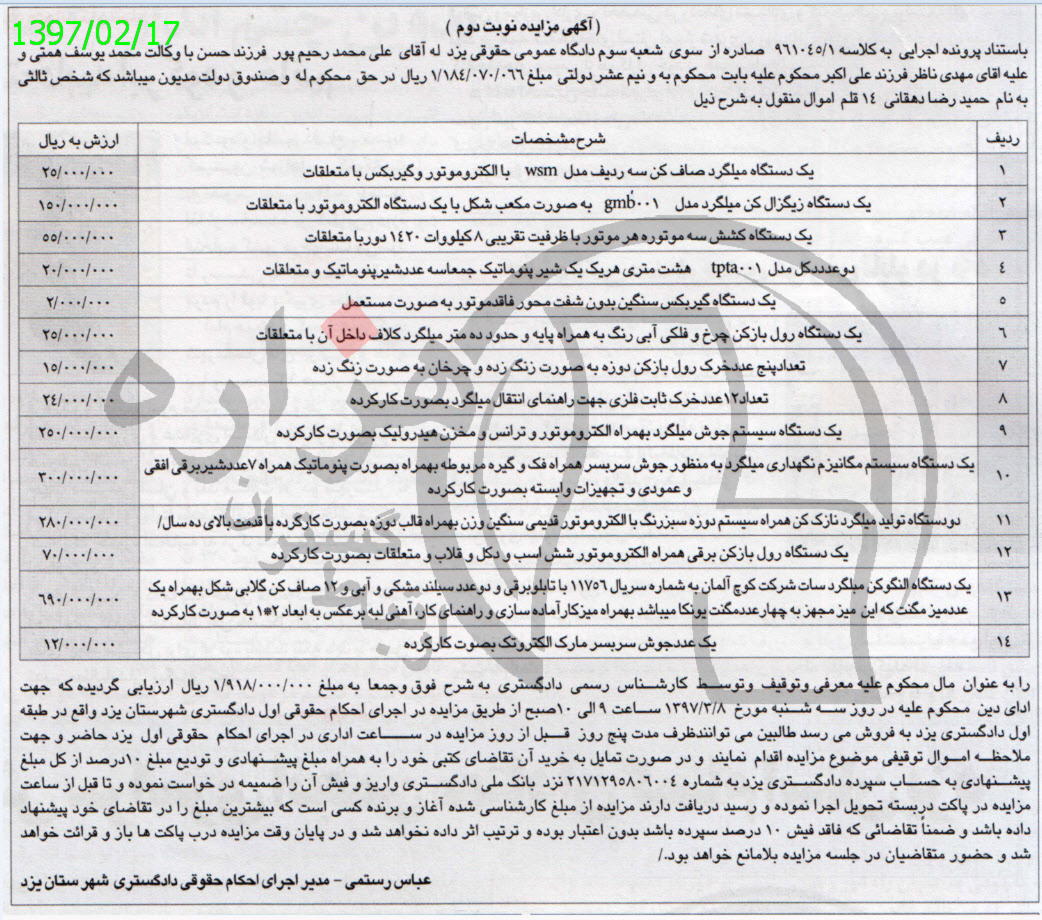 1397/02/17
(آگهی مزایده نوبت دوم )
باستناد پرونده اجرایی به کلاسه ۹۶۱۰۴۵/۱ صادره از سوی شعبه سوم دادگاه عمومی حقوقی یزد له آقای علی محمد رحیم پور فرزند حسن با وکالت محمد یوسف همتی و
علیه اقای مهدی ناظر فرزند علی اکبر محکوم علیه بابت محکوم به و نیم عشر دولتی مبلغ ۱/۱۸۴/۰۷۰/۰۶۶ ریال در حق محکوم له و صندوق دولت مدیون میباشد که شخص ثالثی
به نام حمید رضا دهقانی ۱۴ قلم اموال منقول به شرح ذیل
ردیف شرح مشخصات ارزش به ریال
۱ یک دستگاه میلگرد صاف کن سه ردیف مدل wsm با الکتروموتور وگیربکس با متعلقات ۲۵/۰۰۰/۰۰۰
۲ یک دستگاه زیگزال کن میلگرد مدل gmb۰۰۱ به صورت مکعب شکل با یک دستگاه الکتروموتور با متعلقات ۱۵۰/۰۰۰/۰۰۰
۳ یک دستگاه کشش سه موتوره هر موتور با ظرفیت تقریبی ۸ کیلووات ۱۴۲۰ دوربا متعلقات ۵۵/۰۰۰/۰۰۰
۴ دوعدددکل مدل tpta۰۰۱ هشت متری هریک یک شیر پنوماتیک جمعاسه عددشیرپنوماتیک و متعلقات ۲۰/۰۰۰/۰۰۰
۵ یک دستگاه گیربکس سنگین بدون شفت محور فاقدموتور به صورت مستعمل ۲/۰۰۰/۰۰۰
۶ یک دستگاه رول بازکن چرخ و فلکی آبی رنگ به همراه پایه و حدود ده متر میلگرد کلاف داخل آن با متعلقات ۲۵/۰۰۰/۰۰۰
۷ تعدادپنج عددخرک رول بازکن دوزه به صورت زنگ زده و چرخان به صورت زنگ زده ۱۵/۰۰۰/۰۰۰
۸ تعداد۱۲عددخرک ثابت فلزی جهت راهنمای انتقال میلگرد بصورت کارکرده ۲۴/۰۰۰/۰۰۰
۹ یک دستگاه سیستم جوش میلگرد بهمراه الکتروموتور و ترانس و مخزن هیدرولیک بصورت کارکرده ۲۵۰/۰۰۰/۰۰۰
۱۰ یک دستگاه سیستم مکانیزم نگهداری میلگرد به منظور جوش سربسر همراه فک و گیره مربوطه بهمراه بصورت پنوماتیک همراه ۷عددشیربرقی افقی
و عمودی و تجهیزات وابسته بصورت کارکرده ۳۰۰/۰۰۰/۰۰۰
۱۱ دودستگاه تولید میلگرد نازک کن همراه سیستم دوزه سبزرنگ با الکتروموتور قدیمی سنگین وزن بهمراه قالب دوزه بصورت کارکرده با قدمت بالای ده سال/ ۲۸۰/۰۰۰/۰۰۰
۱۲ یک دستگاه رول بازکن برقی همراه الکتروموتور شش اسب و دکل و قلاب و متعلقات بصورت کارکرده ۷۰/۰۰۰/۰۰۰
۱۳ یک دستگاه النگوکن میلگرد سات شرکت کوچ آلمان به شماره سریال ۱۱۷۵۶ با تابلوبرقی و دوعدد سیلند مشکی و آبی و ۱۲ صاف کن گلابی شکل بهمراه یک
عددمیز مگنت که این میز مجهز به چهارعددمگنت یونکا میباشد بهمراه میزکار آماده سازی و راهنمای کار، آهنی لبه برعکس به ابعاد ۲*۱ به صورت کارکرده ۶۹۰/۰۰۰/۰۰۰
۱۴ یک عددجوش سربسر مارک الکترونک بصوت کارکرده ۱۲/۰۰۰/۰۰۰
را به عنوان مال محکوم علیه معرفی وتوقیف وتوسط کارشناس رسمی دادگستری به شرح فوق وجمعا به مبلغ ۱/۹۱۸/۰۰۰/۰۰۰ ریال ارزیابی گردیده که جهت
ادای دین محکوم علیه در روز سه شنبه مورخ ۱۳۹۷/۳/۸ ساعت ۹ الی ۱۰صبح از طریق مزایده در اجرای احکام حقوقی اول دادگستری شهرستان یزد واقع در طبقه
اول دادگستری یزد به فروش می رسد طالبین می توانندظرف مدت پنج روز قبل از روز مزایده در ساعت اداری در اجرای احکام حقوقی اول یزد حاضر و جهت
ملاحظه اموال توقیفی موضوع مزایده اقدام نمایند و در صورت تمایل به خرید آن تقاضای کتبی خود را به همراه مبلغ پیشنهادی و تودیع مبلغ ۱۰درصد از کل مبلغ
پیشنهادی به حساب سپرده دادگستری یزد به شماره ۲۱۷۱۲۹۵۸۰۶۰۰۴ نزد بانک ملی دادگستری واریز و فیش آن را ضمیمه در خواست نموده و تا قبل از ساعت
مزایده در پاکت دربسته تحویل اجرا نموده و رسید دریافت دارند مزایده از مبلغ کارشناسی شده آغاز و برنده کسی است که بیشترین مبلغ را در تقاضای خود پیشنهاد
داده باشد و ضمناً تقاضائی که فاقد فیش ۱۰ درصد سپرده باشد بدون اعتبار بوده و ترتیب اثر داده نخواهد شد و در پایان وقت مزایده درب پاکت ها باز و قرائت خواهد
شد و حضور متقاضیان در جلسه مزایده بلامانع خواهد بود./
عباس رستمی – مدیر اجرای احکام حقوقی دادگستری شهرستان یزد
هزاره